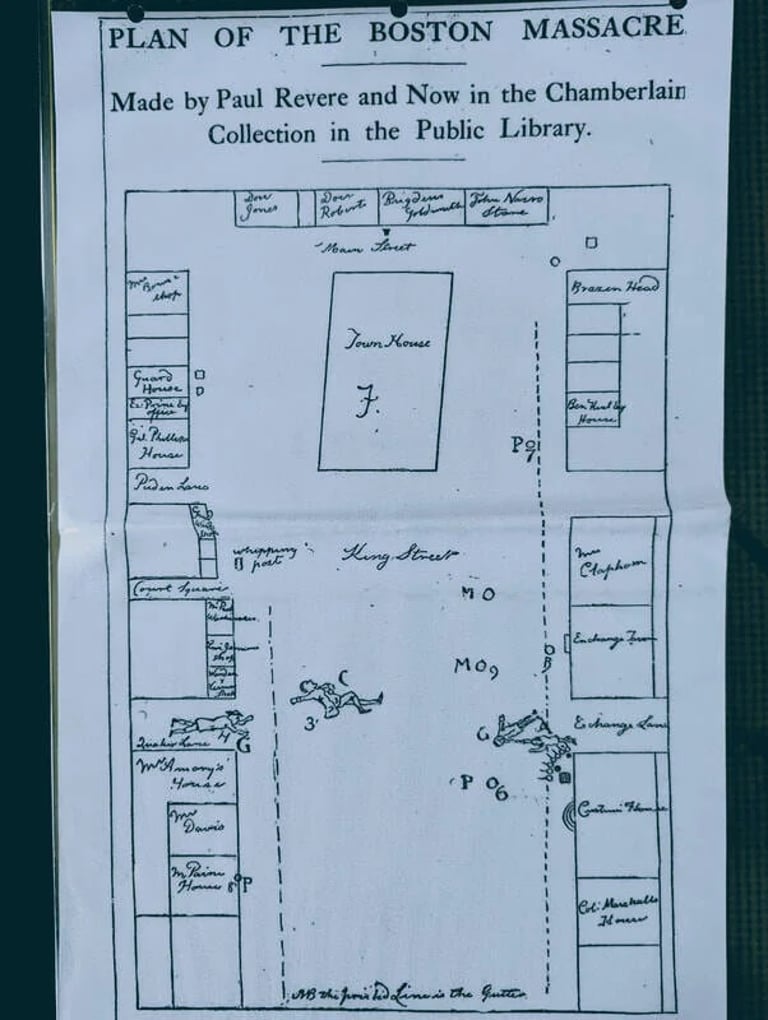 PLAN OF THE BOSTON MASSACRE
Made by Paul Revere and Now in the Chamberlain
Collection in the Public Library.
Doct
Jones
Doct
Roberts
Brigdens
Goldsmith
John Nazro
Store
Main Street
shop
Brazen Head
Town House
F.
Guard
House
office
House
Gil. Phillips
House
P
7
Puden Lane
whipping
post
King Street
Mrs
Clapham
Court Square
M O
Exchange Tavern
shop
M O 9
B
C
3
G
A
Exchange Lane
Quaker Lane
4 G
Mr Amory's
House
P O 6
Custom House
Mr
Davis
M Pain
House 8 P
Col: Marshalls
House
NB the pricked Line is the Gutter